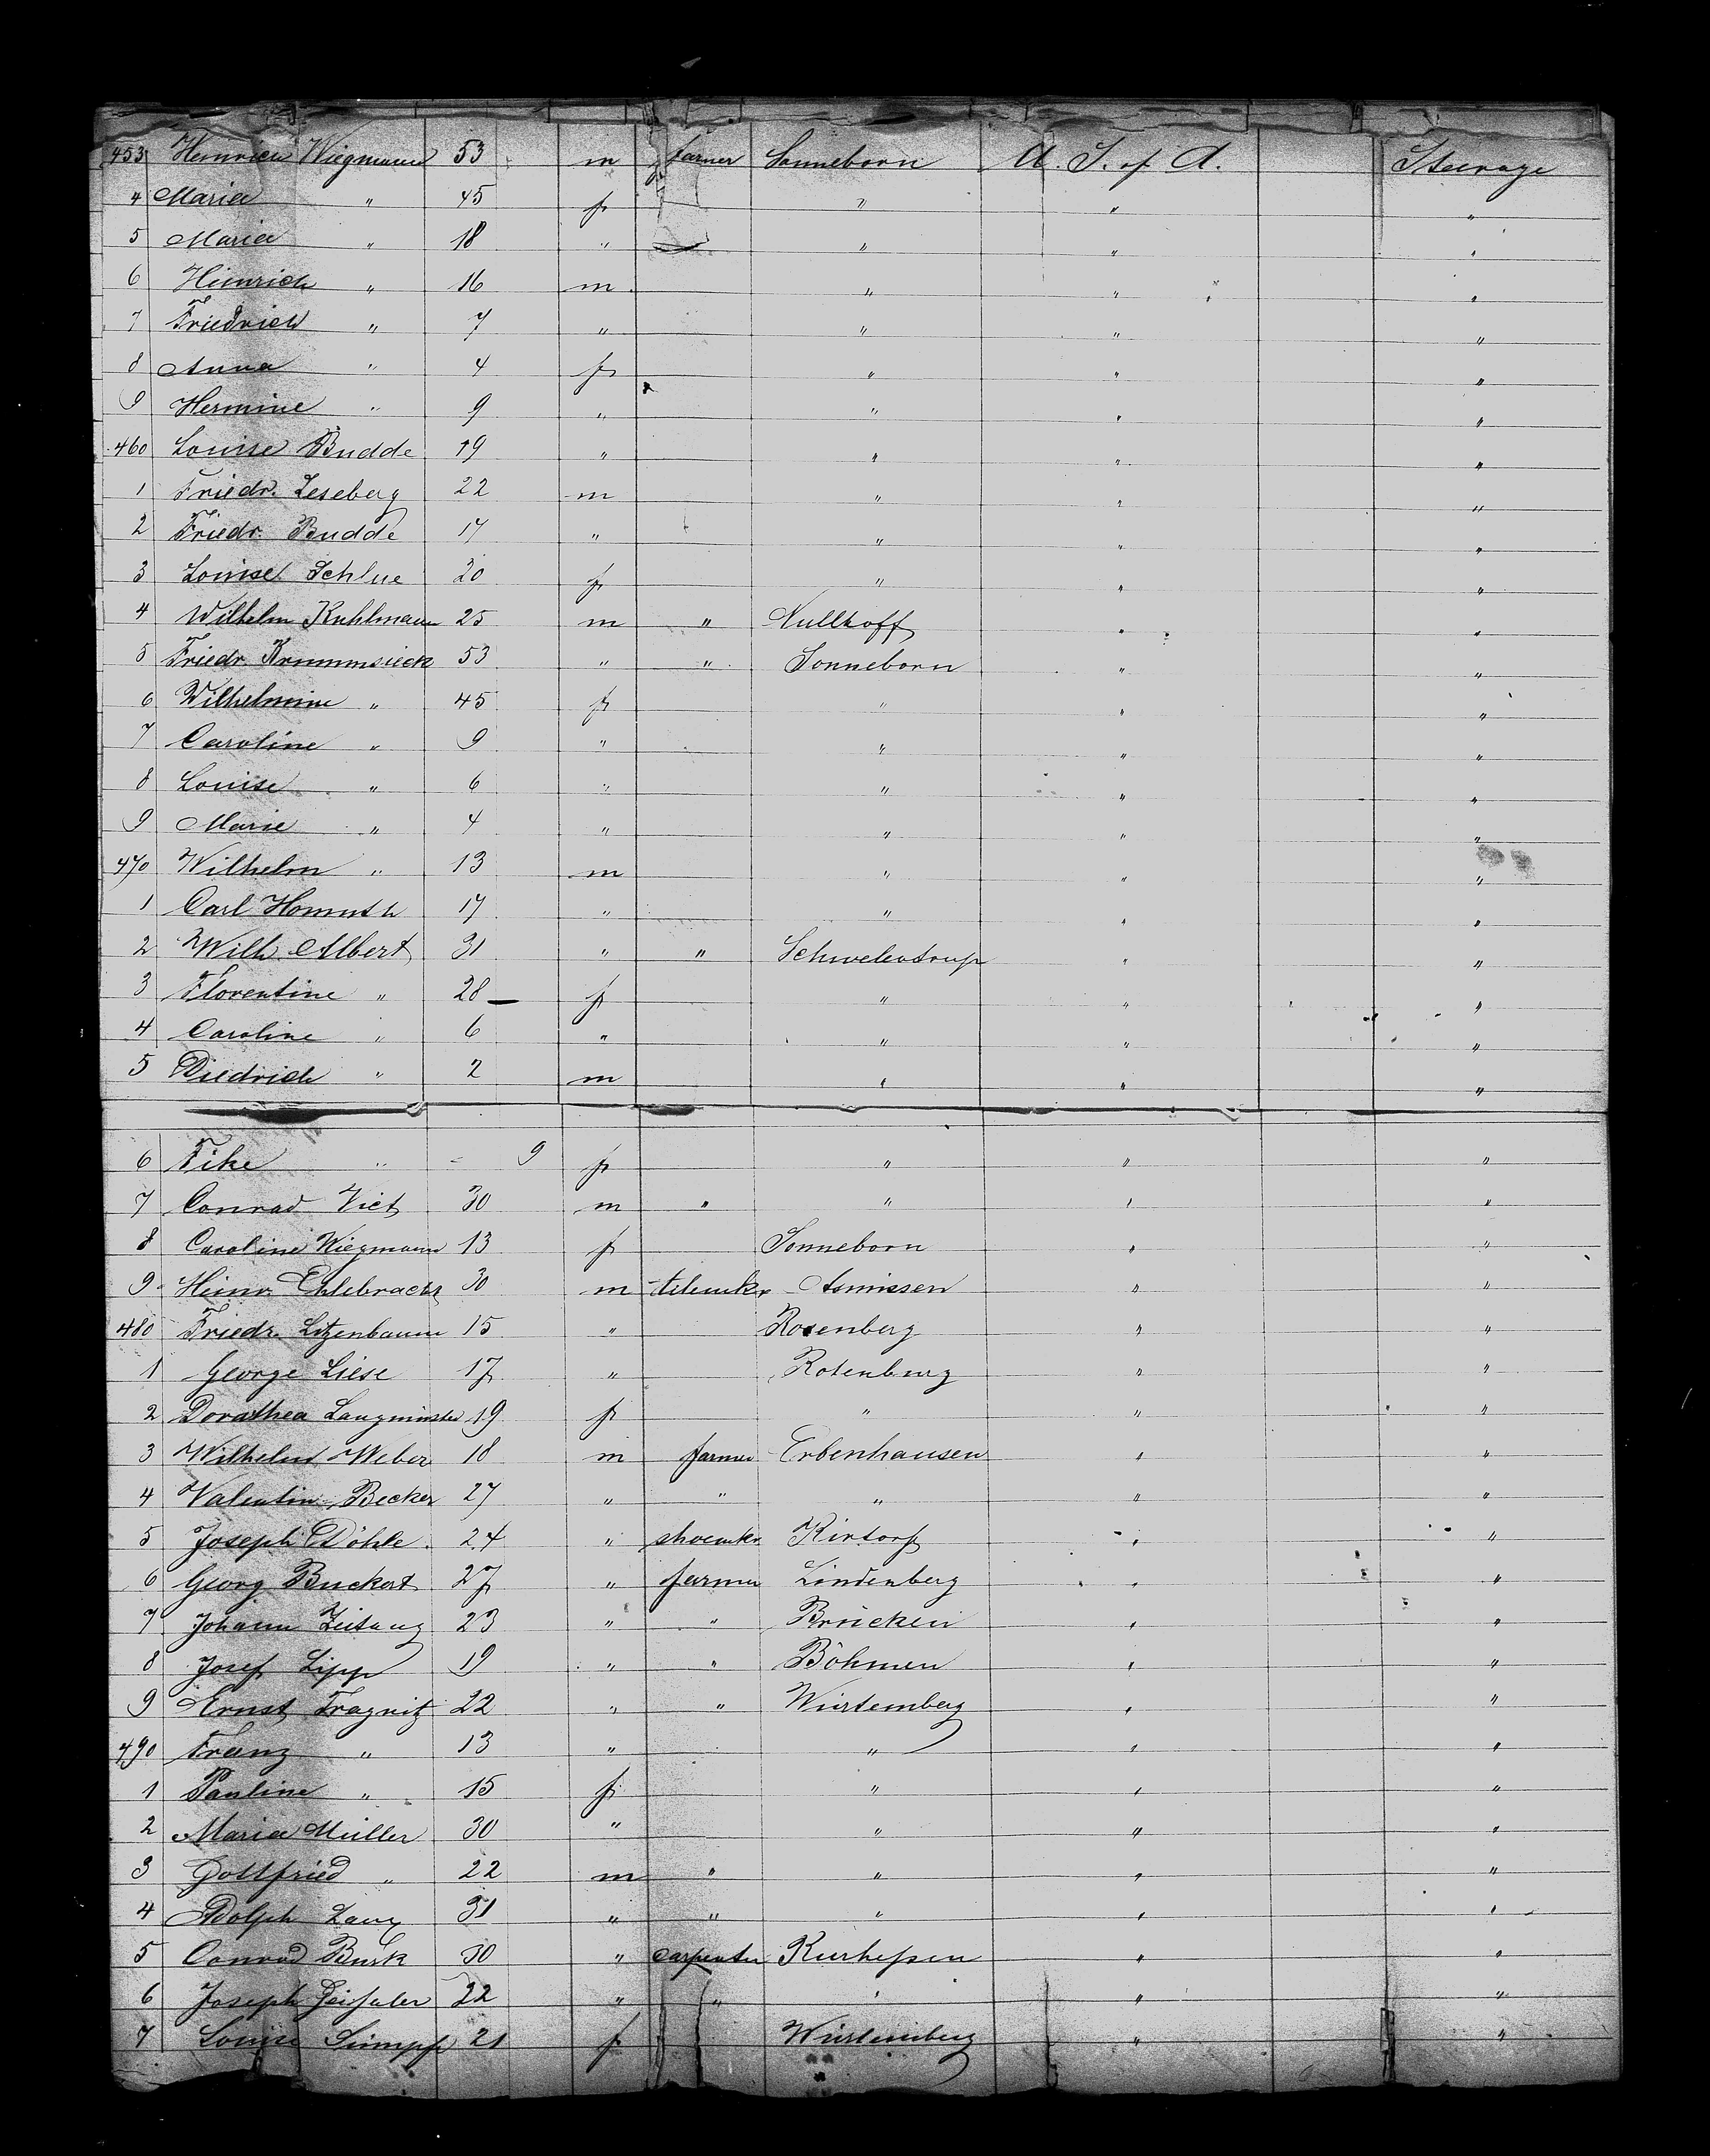 453 Heinrich Wiegmann 53 m farmer Sonneborn U. S. of A. Steerage
4 Maria " 45 f " " "
5 Maria " 18 " " " "
6 Heinrich " 16 m " " "
7 Friedrich " 7 " " " "
8 Anna " 4 f " " "
9 Hermine " 9 " " " "
460 Louise Budde 19 " " " "
1 Friedr. Leseberg 22 m " " "
2 Friedr. Budde 17 " " " "
3 Louise Schlue 20 f " " "
4 Wilhelm Kuhlmann 25 m " Nullhoff " "
5 Friedr. Krummsieck 53 " " Sonneborn " "
6 Wilhelmine " 45 f " " "
7 Caroline " 9 " " " "
8 Louise " 6 " " " "
9 Marie " 4 " " " "
470 Wilhelm " 13 m " " "
1 Carl Homuth 17 " " " "
2 Wilh. Albert 31 " " Schwelentrup " "
3 Florentine " 28 f " " "
4 Caroline " 6 " " " "
5 Diedrich " 2 m " " "
6 Fike " - 9 f " " "
7 Conrad Viet 30 m " " " "
8 Caroline Wiegmann 13 f Sonneborn " "
9 Heinr. Ehlebracht 30 m Asmissen " "
480 Friedr. Litzenbaum 15 " Rosenberg " "
1 George Liese 17 " Rotenburg " "
2 Dorathea 19 f " " "
3 Wilhelm Weber 18 m farmer Erbenhausen " "
4 Valentin Becker 27 " " " " "
5 Joseph Döhle 24 " shoemkr. Kirtorf " "
6 Georg Buckert 27 " farmer Lindenberg " "
7 Johann Zeitung 23 " " Brücken " "
8 Josef Lipp 19 " " Böhmen " "
9 Ernst Fragnitz 22 " " Würtemberg " "
490 Franz " 13 " " " "
1 Pauline " 15 f " " "
2 Maria Müller 30 " " " "
3 Gottfried " 22 m " " " "
4 Adolph Lang 31 " " " " "
5 Conrad Busk 30 " carpenter Kurhessen " "
6 Joseph 22 " " " " "
7 Louise 21 f Würtemberg " "